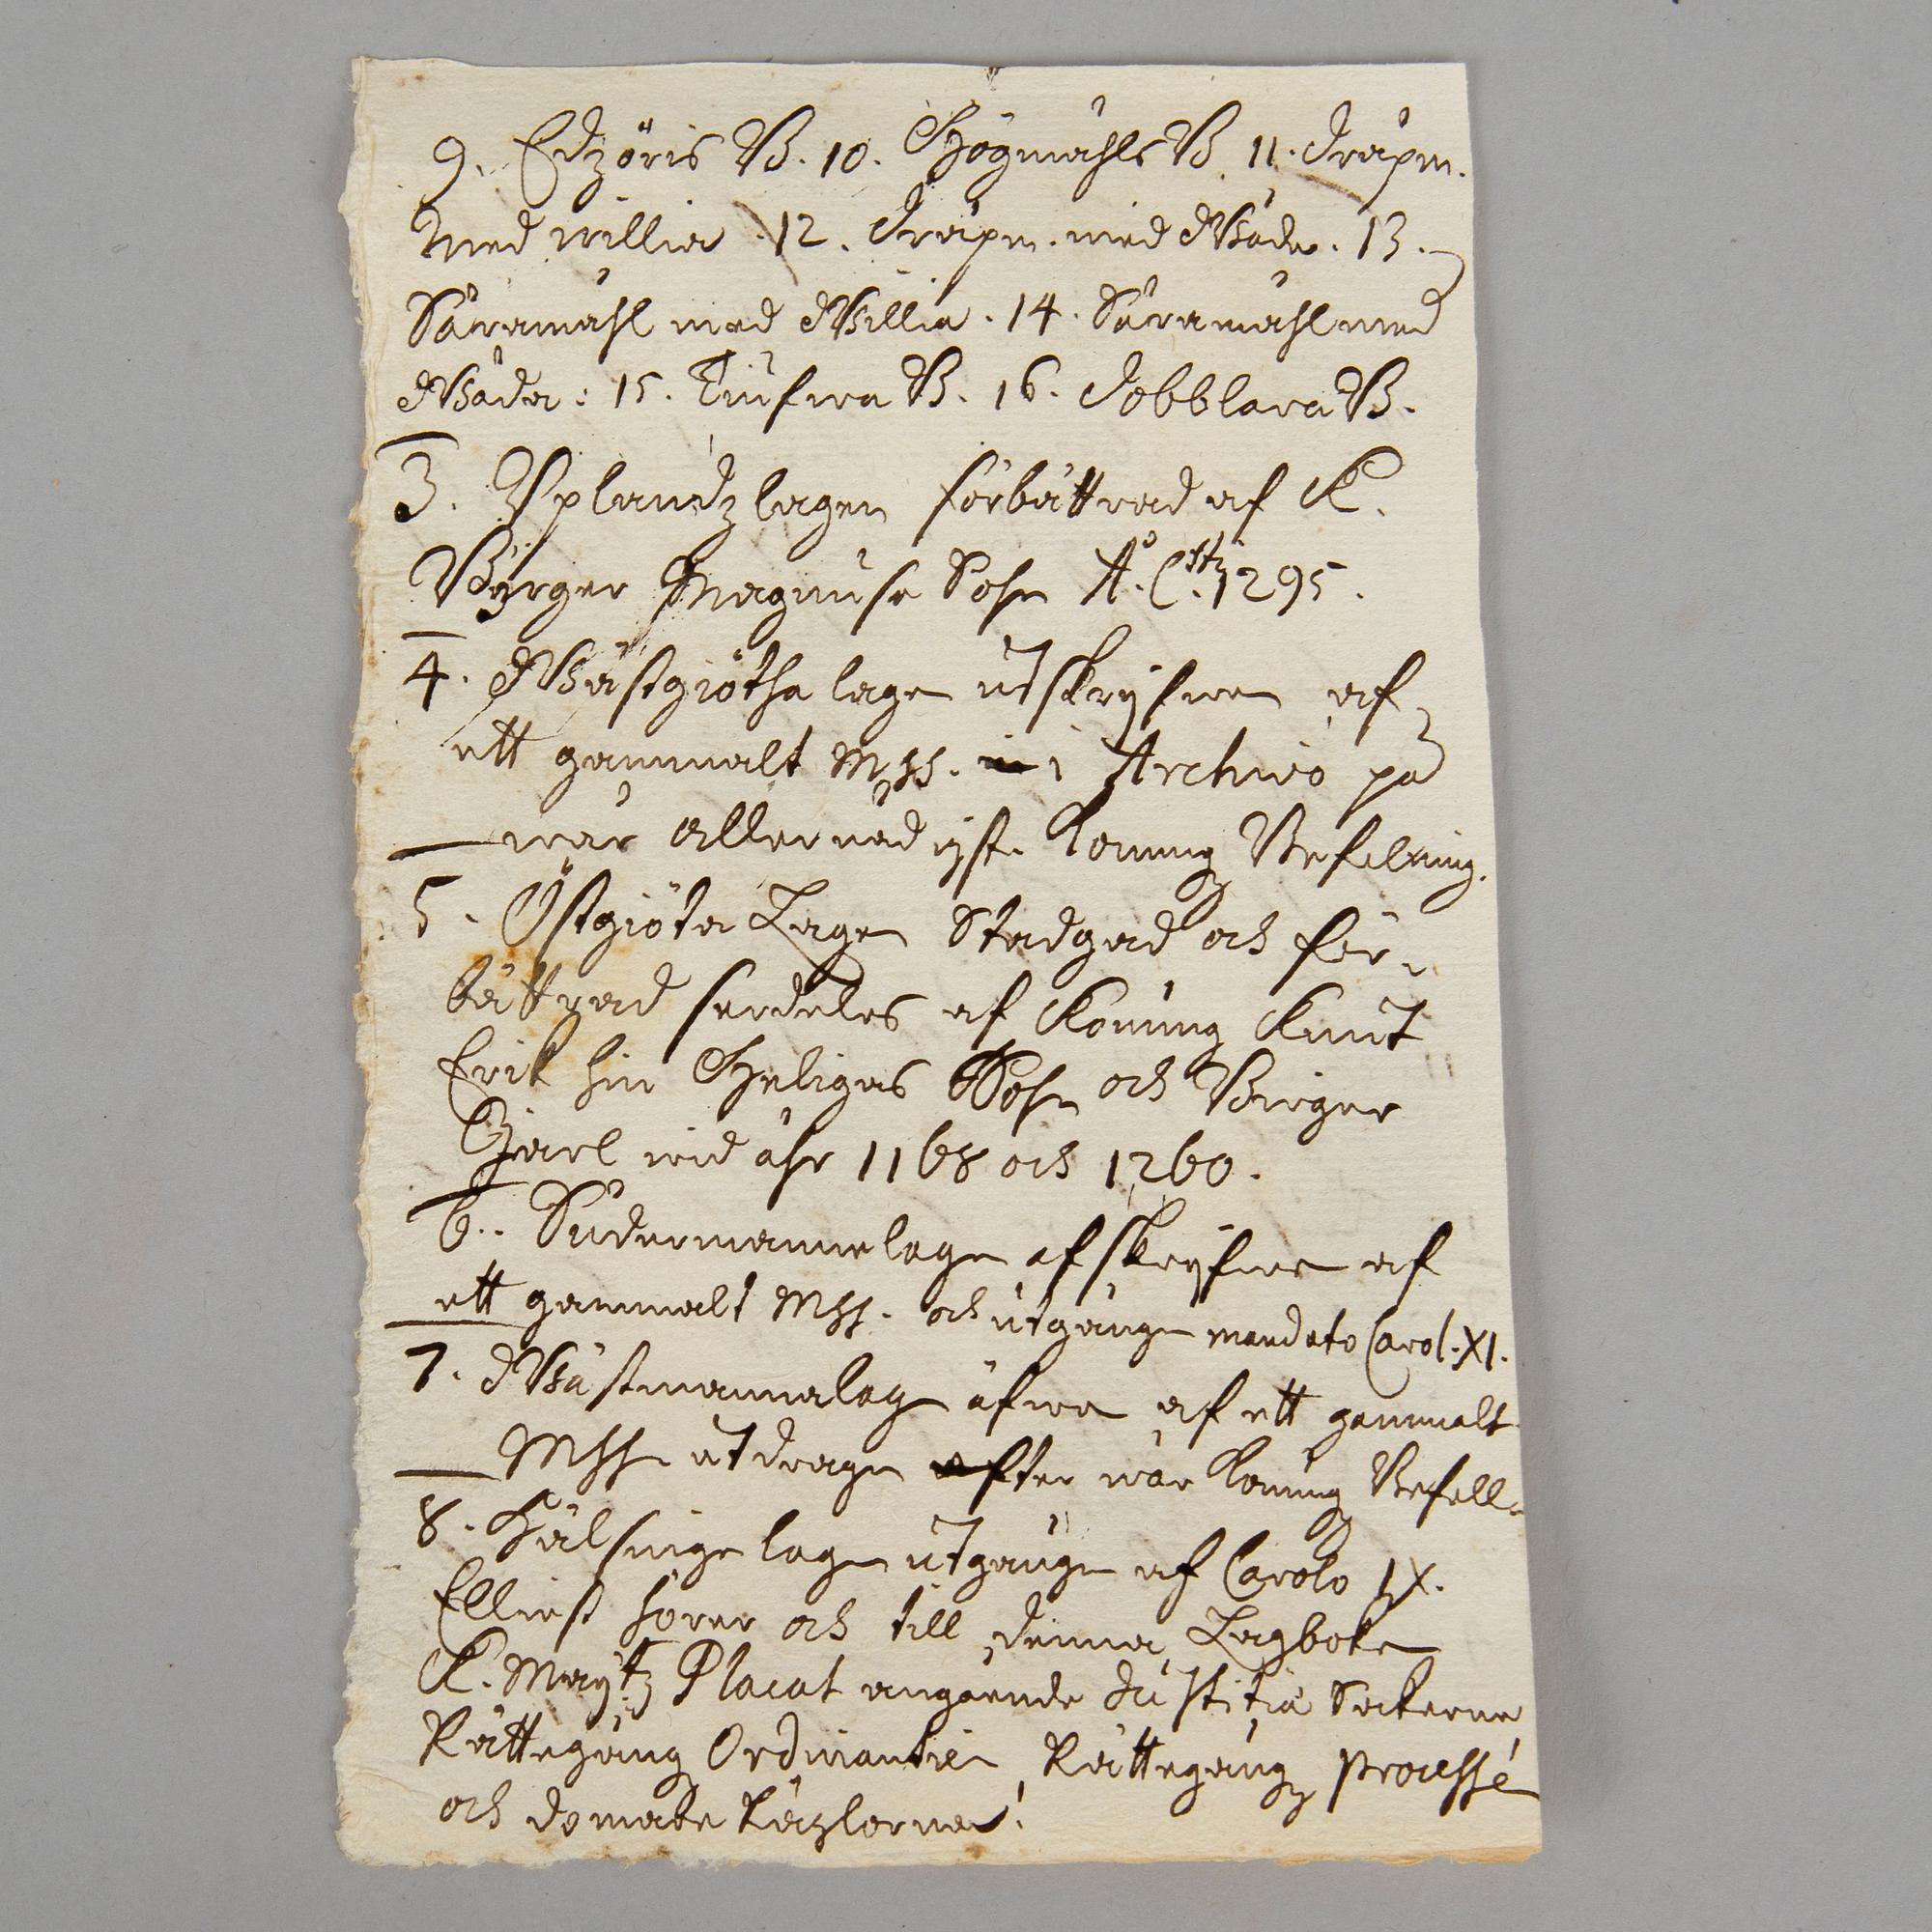 9. Edzöris B. 10. Högmåhls B. 11. Dråpm.
med willia 12. Dråpm. med Wåda. 13.
Såramåhl med Willia. 14. Såramåhl med
Wåda: 15. Tiufwa B. 16. Dobblara B.
3. Uplandzlagen förbättrad af K.
Byrger Magnuse Sohn A.o C.sti 1295.
4. Wästgiötha lagen utskryfwen af
ett gammalt Mss. i Archivo på
wår allernådigste konung Befalning.
5. Östgiöta Lagen Stadgad och för-
bättrad serdeles af Konung Knut
Erik hin Heligas Sohn och Birger
Jarl wid åhr 1168 och 1260.
6. Sudermannelagen afskryfwen af
ett gammalt Mss. och utgången mandato Carol. XI.
7. Wästmannalagen äfwen af ett gammalt
Mss utdragen efter wår konung Befall-
8. Hälsinge lagen utgången af Carolo IX.
Elliest hörer och till denna Lagboken
K. Maytz Placat angående Justitiæ Sakerne,
Rättegång Ordinantien, Rättegångz Processe
och domare Räglorna.